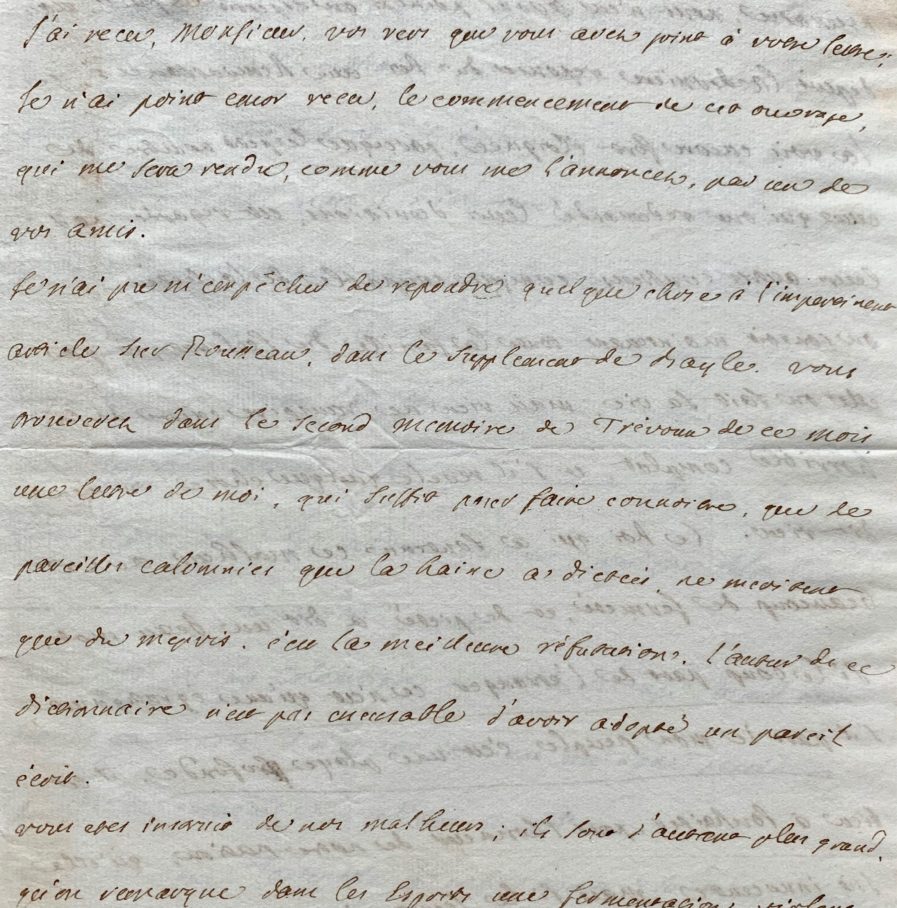 j'ai recu, Monsieur, vos vers que vous avez joint à votre lettre;
je n'ai point encor recu, le commencement de cet ouvrage,
qui me sera rendu, comme vous me l'annoncez, par un de
vos amis.
je n'ai pu m'enpêcher de repondre quelque chose à l'impertinent
article sur Rousseau, dans le supplement de Bayle. vous
trouverez dans le second memoire de Trévoux de ce mois
une lettre de moi, qui suffit pour faire connoitre, que de
pareilles calomnies que la haine a dictées, ne meritent
que du mepris. c'est la meilleure réfutation. l'auteur de ce
dictionnaire n'est pas excusable d'avoir adopté un pareil
écrit.
vous etes instruit de nos malheurs; ils sont d'autant plus grand.
qu'on remarque dans les esprits une fermentation